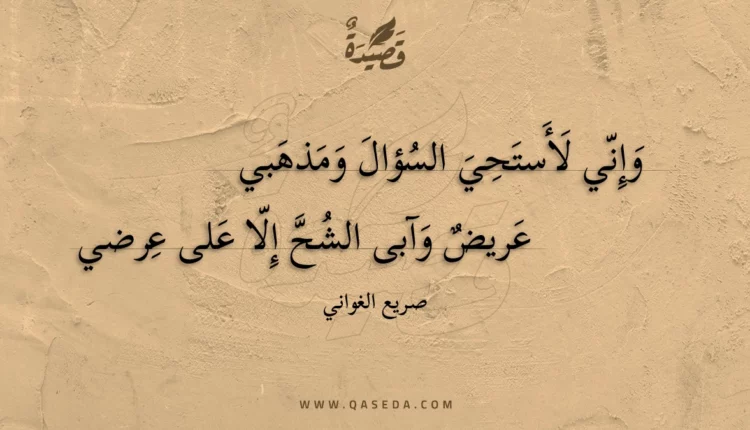 قَصِيدَةٌ
وَإِنّي لَأَستَحِيَ السُؤالَ وَمَذهَبي
عَريضٌ وَآبى الشُحَّ إِلّا عَلى عِرضي
صريع الغواني
WWW.QASEDA.COM